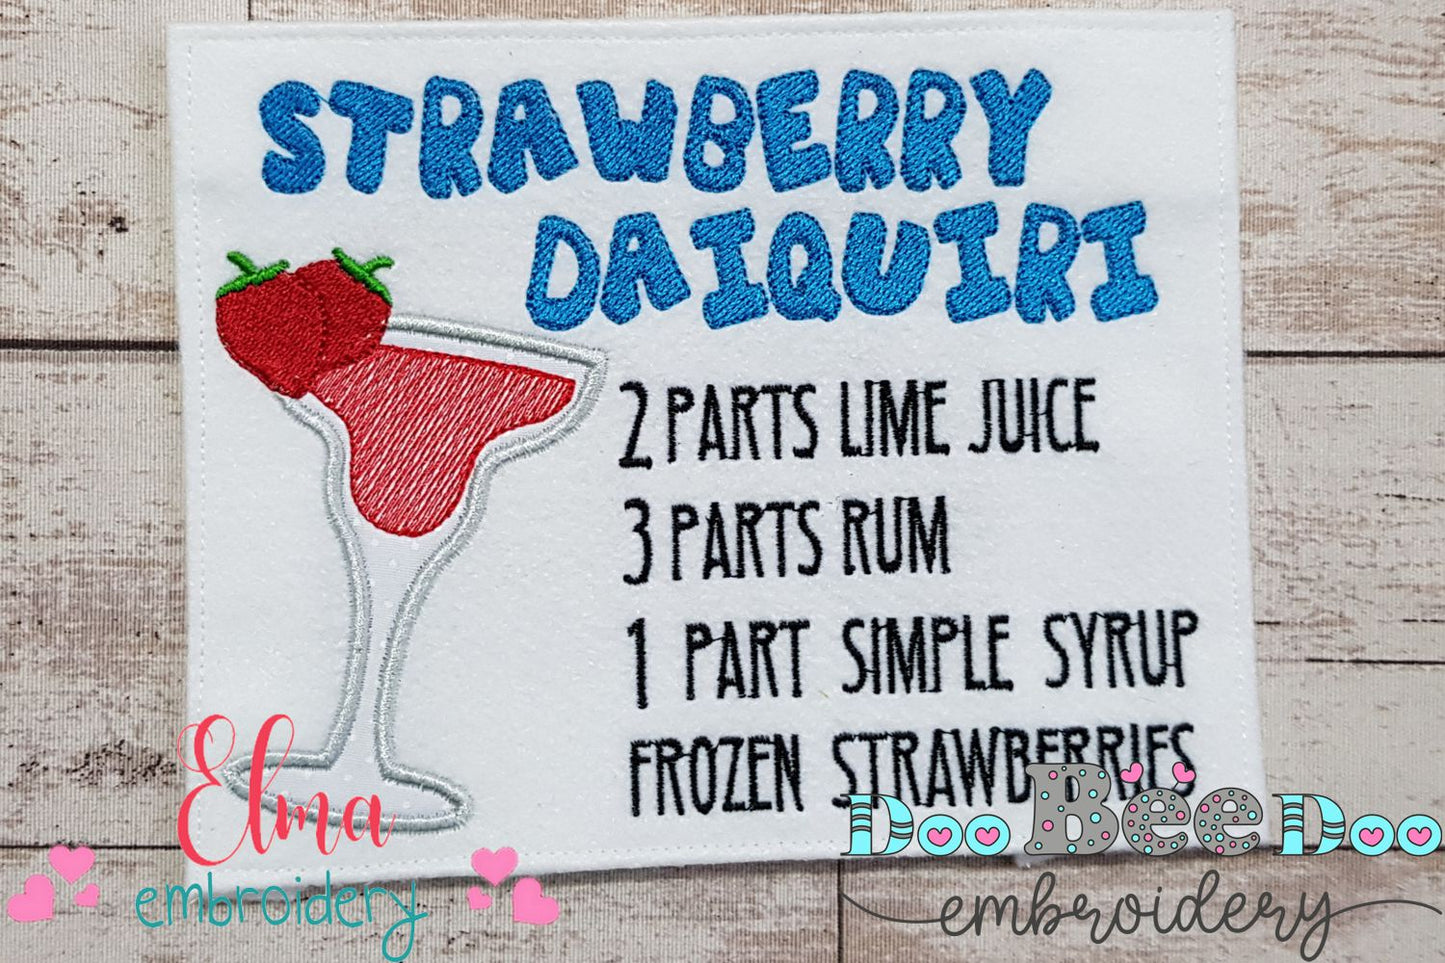 STRAWBERRY
DAIQUIRI
2 PARTS LIME JUICE
3 PARTS RUM
1 PART SIMPLE SYRUP
FROZEN STRAWBERRIES
Elma
embroidery
Doo Bee Doo
embroidery